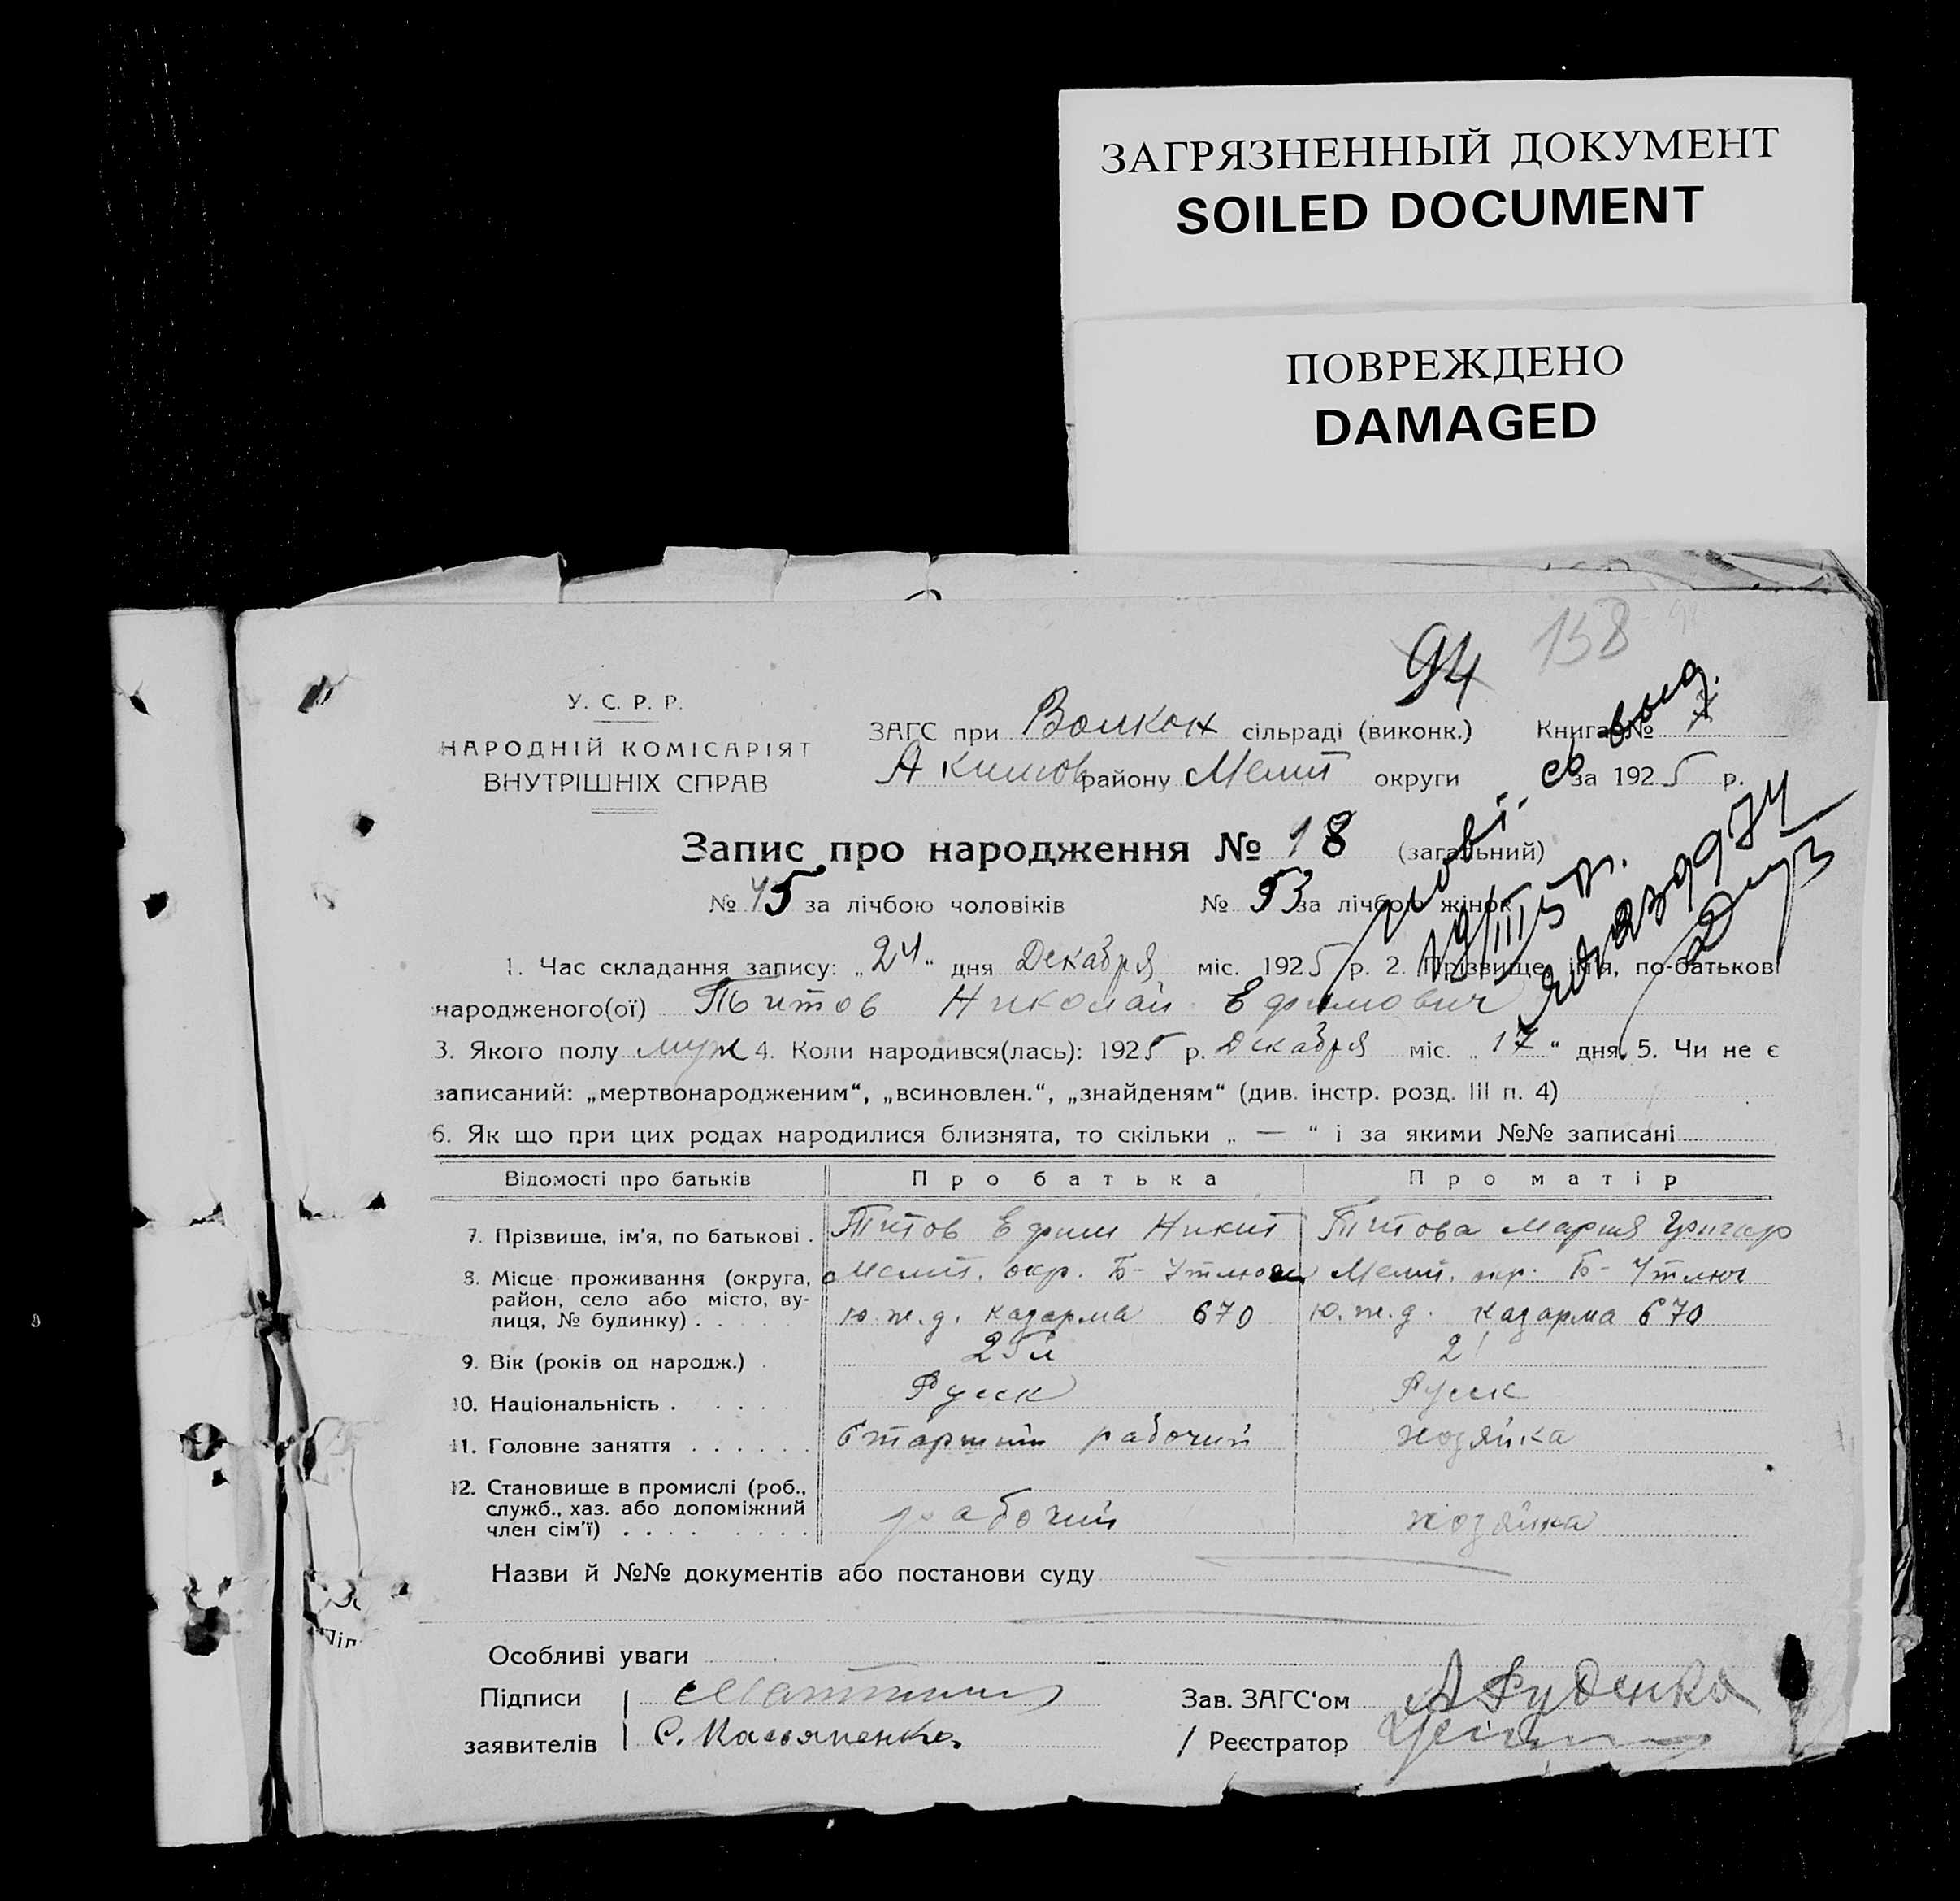 ЗАГРЯЗНЕННЫЙ ДОКУМЕНТ
SOILED DOCUMENT
ПОВРЕЖДЕНО
DAMAGED
94 158
У. С. Р. Р.
НАРОДНІЙ КОМІСАРІЯТ
ВНУТРІШНІХ СПРАВ
ЗАГС при Волкон сільраді (виконк.) Книга № 7
Акимов району Мелит округи за 1925 р.
св выд.
Запис про народження № 18 (загальний)
№ 45 за лічбою чоловіків № 53 за лічбою жінок
1. Час складання запису: „24“ дня Декабря міс. 1925 р. 2. Прізвище, ім'я, по-батькові
народженого(ої) Титов Николай Ефимович
3. Якого полу муж 4. Коли народився(лась): 1925 р. Декабря міс. „17“ дня. 5. Чи не є
записаний: „мертвонародженим“, „всиновлен.“, „знайденям“ (див. інстр. розд. III п. 4)
6. Як що при цих родах народилися близнята, то скільки „ — “ і за якими №№ записані
Відомості про батьків Про батька Про матір
7. Прізвище, ім'я, по батькові . Титов Ефим Никит Титова Мария Григор
8. Місце проживання (округа, район, село або місто, ву-лиця, № будинку) . . Мелит. окр. Б- Утлюг Мелит. окр. Б- Утлюг
ю.ж.д. казарма 670 ю.ж.д. казарма 670
9. Вік (років од народж.) . 25 л 2
10. Національність . . . . Русск Русск
11. Головне заняття . . . . . . Старший рабочий хозяйка
12. Становище в промислі (роб.,
служб., хаз. або допоміжний
член сім'ї) . . . . . . . . рабочий хозяйка
Назви й №№ документів або постанови суду
Особливі уваги
Підписи Зав. ЗАГС'ом А Руденко
заявителів С. Касьяненко / Реєстратор